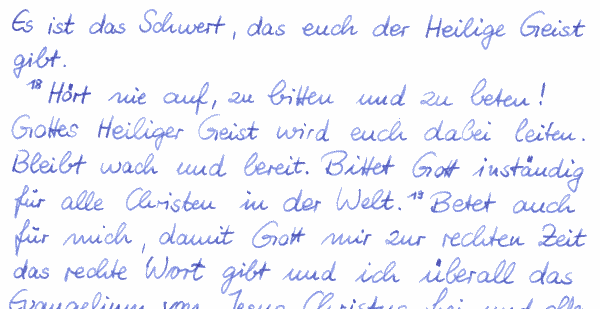 Es ist das Schwert, das euch der Heilige Geist
gibt.
18 Hört nie auf, zu bitten und zu beten!
Gottes Heiliger Geist wird euch dabei leiten.
Bleibt wach und bereit. Bittet Gott inständig
für alle Christen in der Welt. 19 Betet auch
für mich, damit Gott mir zur rechten Zeit
das rechte Wort gibt und ich überall das
Evangelium von Jesus Christus bei und alle